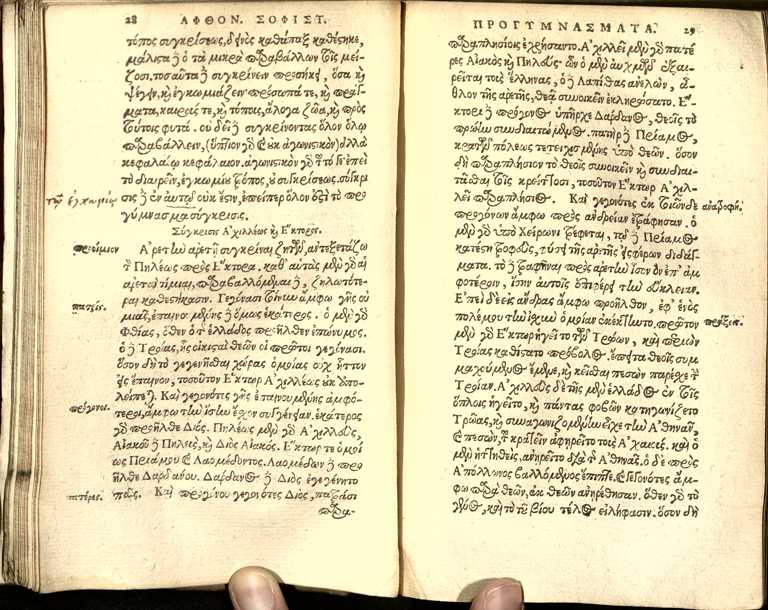 28 ΑΦΘΟΝ. ΣΟΦΙΣΤ.
τόπος συγκρίσεως, ὁ
μάλιστα ἢ ὁ τὰ μικρὰ παραβάλλων τοῖς μεί-
ζοσι. τοσαῦτα ἢ συγκρίνειν προσήκει, ὅσα καὶ
ψέγειν, καὶ ἐγκωμιάζειν πρόσωπά τε, καὶ πράγ-
ματα, καιρούς τε, καὶ τόπους, ἄλογα ζῶα, καὶ πρὸς
τούτοις φυτά. οὐ δεῖ ἢ συγκρίνοντας ὅλον ὅλῳ
παραβάλλειν, (ὕπτιον γὰρ καὶ οὐκ ἀγωνιστικὸν) ἀλλὰ
κεφαλαίῳ κεφάλαιον. ἀγωνιστικὸν γὰρ
τὸ διαιρεῖν, ἐγκωμίου τρόπος, συγκρίσεως. σύγκρι
σις ἢ ἐν αὐτῷ οὐκ ἔστιν, ἐπείπερ ὅλον ἐστὶ τὸ προ
γύμνασμα σύγκρισις.
Σύγκρισις Ἀχιλλέως καὶ Ἕκτορος.
προοίμιον
Ἀρετὴν ἀρετῇ συγκρῖναι ζητῶν, ἀντεξετάζω
τὸν Πηλέως πρὸς Ἕκτορα. καθ' αὑτὰς μὲν γὰρ αἱ
ἀρεταὶ τίμιαι, παραβαλλόμεναι δὲ, ζηλωτότε-
ραι καθεστήκασιν. Γεγόνασι τοίνυν ἄμφω γῆς οὐ
πατρίς.
μιᾶς, ἐπαινουμένης δ' ὅμως ἑκάτερος. ὁ μὲν γὰρ
Φθίας, ὅθεν ὁ τῆς ἑλλάδος προῆλθεν ἐπώνυμος.
ὁ δὲ Τροίας, ἧς οἰκισταὶ θεῶν οἱ πρῶτοι γεγόνασι.
ὅσον δὴ τὸ γεγενῆσθαι χώρας ὁμοίας οὐχ ἧττον
εἰς ἔπαινον, τοσοῦτον Ἕκτωρ Ἀχιλλέως οὐκ ἀπο-
λείπεται. Καὶ γεγονότες γῆς ἐπαινουμένης ἀμφό-
πρόγονοι.
τεροι, ἄμφω τὴν ἴσην ἔσχον συγγένειαν. ἑκάτερος
γὰρ προῆλθε Διός. Πηλέως μὲν γὰρ Ἀχιλλεύς,
Αἰακοῦ δὲ Πηλεύς, καὶ Διὸς Αἰακός. Ἕκτωρ τε ὁμοί
ως Πριάμου καὶ Λαομέδοντος. Λαομέδων δὲ προ
ῆλθε Δαρδάνου. Δάρδανος δὲ Διὸς ἐγεγένητο
πατέρες.
παῖς. Καὶ προγόνου γεγονότες Διός, πατράσι
παρα-
ΠΡΟΓΥΜΝΑΣΜΑΤΑ. 29
παραπλησίοις ἐχρήσαντο. Ἀχιλλεῖ μὲν γὰρ πατέ
ρες Αἰακὸς καὶ Πηλεύς· ὧν ὁ μὲν αὐχμῶν ἐξαι-
ρεῖται τοὺς ἕλληνας, ὁ δὲ Λαπίθας ἀνελών, ἆ-
θλον τῆς ἀρετῆς, θεᾷ συνοικεῖν ἐκληρώσατο. Ἕ-
κτορι δὲ πρόγονος ὑπῆρχε Δάρδανος, θεοῖς τὸ
πρώην συνδιαιτώμενος. πατὴρ δὲ Πρίαμος,
κρατῶν πόλεως τετειχισμένης ὑπὸ θεῶν. ὅσον
δὴ παραπλήσιον τὸ θεοῖς συνοικεῖν καὶ συνδιαι-
τᾶσθαι τοῖς κρείττοσι, τοσοῦτον Ἕκτωρ Ἀχιλ-
λεῖ παραπλήσιος. Καὶ γεγονότες ἐκ τοιῶνδε
ἀναθροφή.
προγόνων ἄμφω πρὸς ἀνδρείαν ἐτράφησαν. ὁ
μὲν γὰρ ὑπὸ Χείρωνι τρέφεται, τῷ δὲ Πρίαμος
κατέστη τροφεύς, φύσει τῆς ἀρετῆς εἰσφέρων διδάγ-
ματα. τὸ δὲ τραφῆναι πρὸς ἀρετὴν ἴσον ὂν ἐπ' ἀμ
φοτέροιν, ἴσην αὐτοῖς ἐπιφέρει τὴν εὔκλειαν.
Ἐπεὶ δὲ εἰς ἄνδρας ἄμφω προῆλθον, ἐφ' ἑνὸς
πολέμου τὴν ἰσχὺν ὁμοίαν ἐπεκτήσαντο. πρῶτον
πράξεις.
μὲν γὰρ Ἕκτωρ ἡγεῖτο τῶν Τρώων, καὶ περιὼν
Τροίας καθίστατο πρόβολος. ἔπειτα θεοῖς συμ
μαχούμενος ἔμεινε, καὶ κεῖσθαι πεσὼν παρέσχε τὴν
Τροίαν. Ἀχιλλεὺς δὲ τῆς μὲν ἑλλάδος ἐν τοῖς
ὅπλοις ἡγεῖτο, καὶ πάντας φοβῶν κατηγωνίζετο
Τρῶας, καὶ συναγωνιζομένην εἶχε τὴν Ἀθηνᾶν,
καὶ πεσών, τὸ κρατεῖν ἀφῃρεῖτο τοῖς Ἀχαιοῖς. καὶ ὁ
μὲν ἡττηθεὶς, ἀνῃρεῖτο διὰ τῆς Ἀθηνᾶς. ὁ δὲ πρὸς
Ἀπόλλωνος βαλλόμενος ἔπιπτε. καὶ γεγονότες ἄμ-
φω παρὰ θεῶν, ἐκ θεῶν ἀνῃρέθησαν. ὅθεν γὰρ τὸ
γένος, καὶ τὸ τοῦ βίου τέλος εἰλήφασιν. ὅσον δὴ